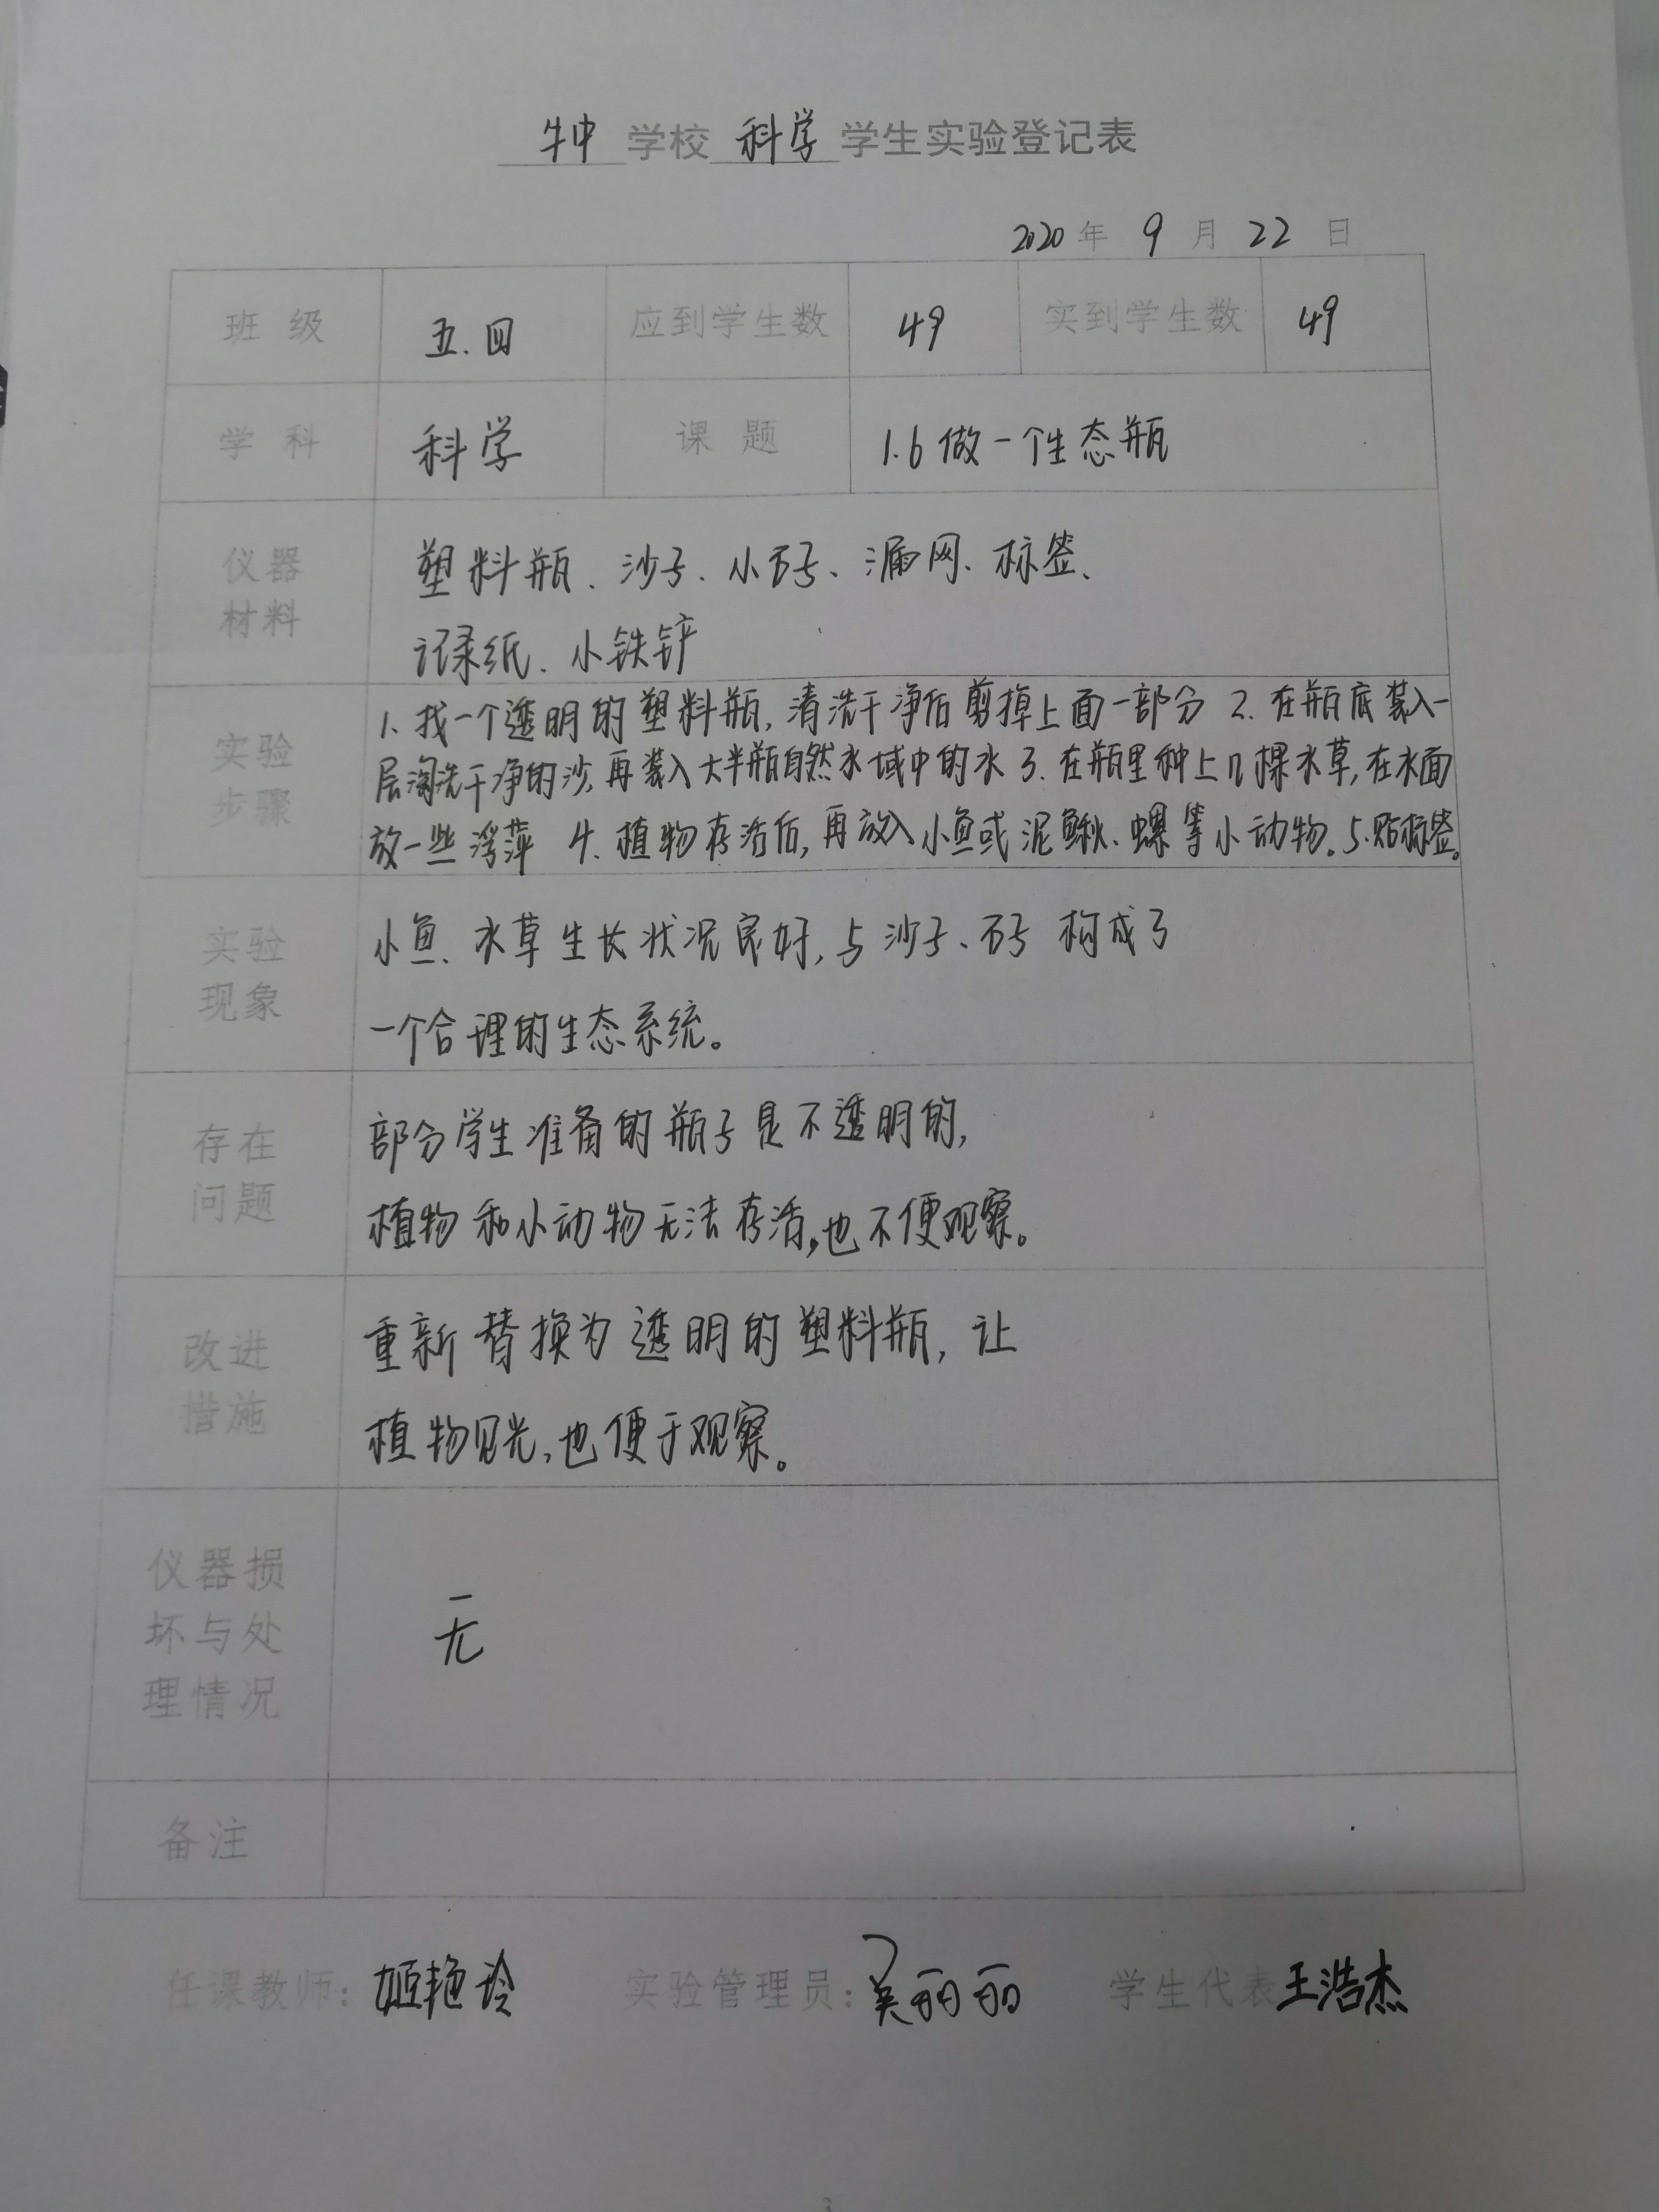 牛中 学校 科学 学生实验登记表
2020 年 9 月 22 日
班 级 五.四 应到学生数 49 实到学生数 49
学 科 科学 课 题 1.6 做一个生态瓶
仪器
材料
塑料瓶、沙子、小石子、漏网、标签、
记录纸、小铁铲
实验
步骤
1. 找一个透明的塑料瓶,清洗干净后剪掉上面一部分 2. 在瓶底装入一
层淘洗干净的沙,再装入大半瓶自然水域中的水 3. 在瓶里种上几棵水草,在水面
放一些浮萍 4. 植物存活后,再放入小鱼或泥鳅、螺等小动物。5.贴标签。
实验
现象
小鱼、水草生长状况良好,与沙子、石子 构成了
一个合理的生态系统。
存在
问题
部分学生准备的瓶子是不透明的,
植物和小动物无法存活,也不便观察。
改进
措施
重新替换为透明的塑料瓶,让
植物见光,也便于观察。
仪器损
坏与处
理情况
无
备注
任课教师: 姬艳玲 实验管理员: 吴丽丽 学生代表 王浩杰
3